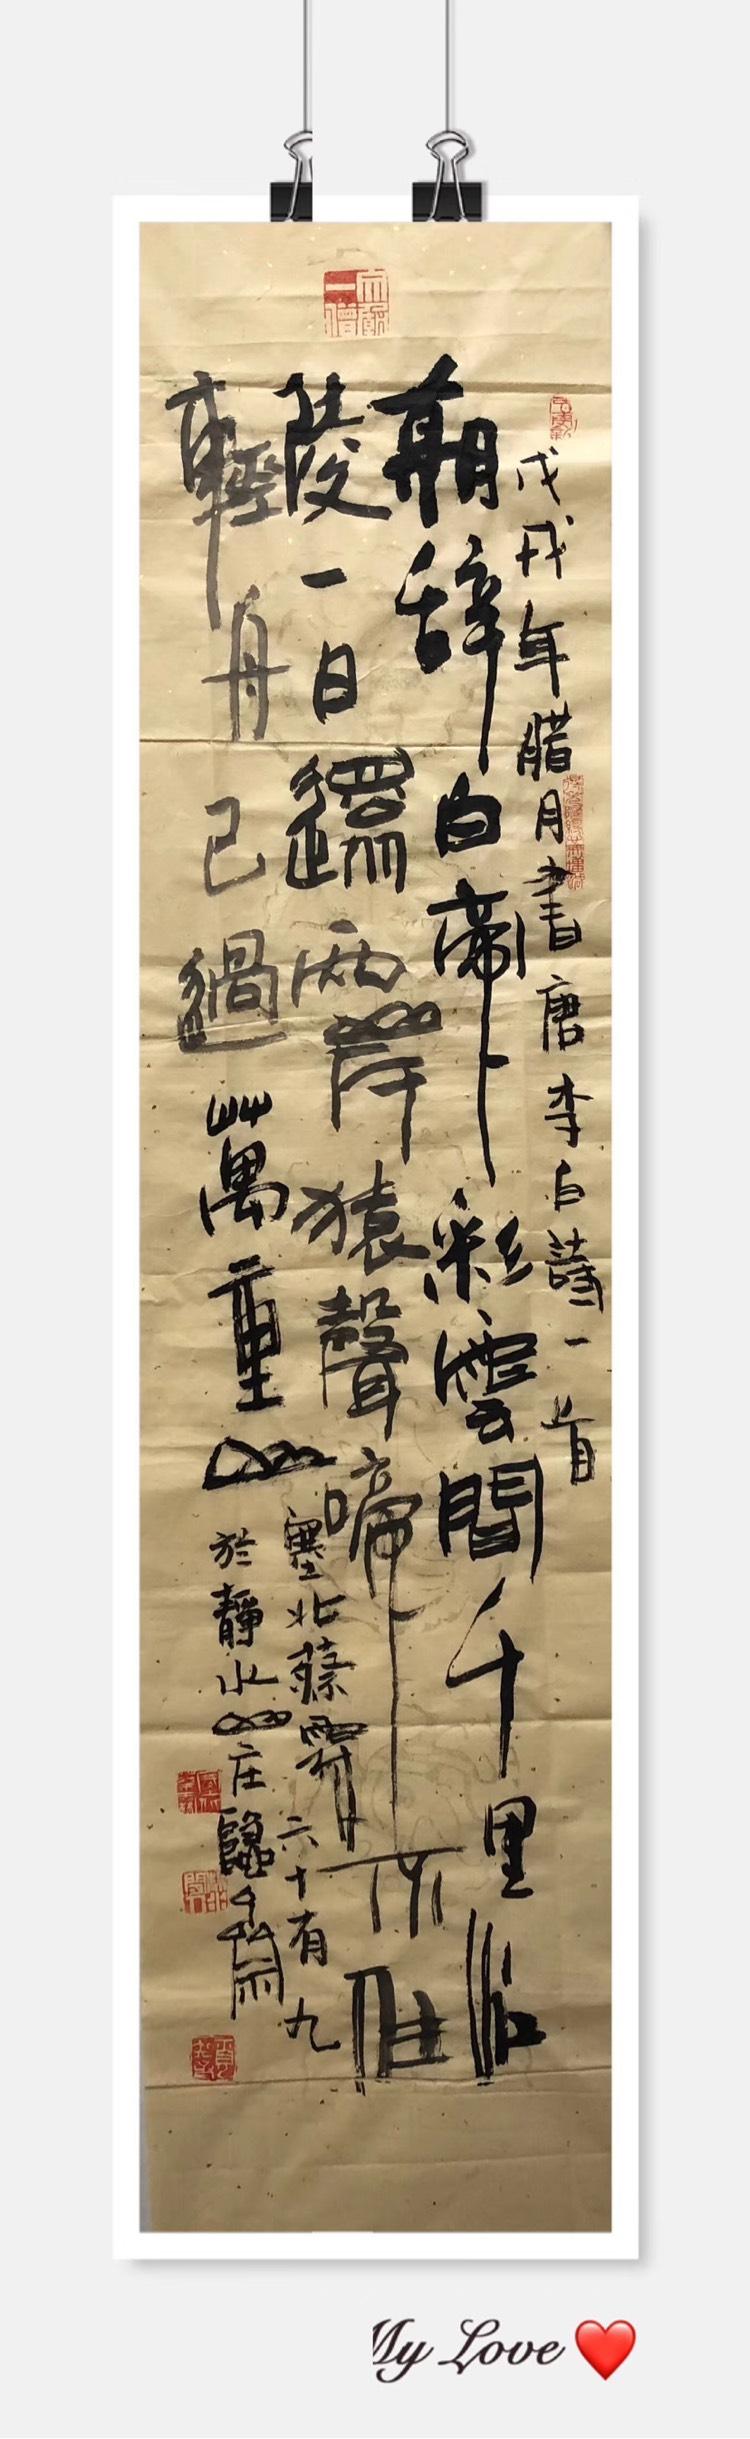 戊戌年腊月書唐李白詩一首
朝辞白帝彩雲間千里江
陵一日還兩岸猿聲啼不住
輕舟已過萬重山
塞北 六十有九
於靜水山庄
My Love ❤️